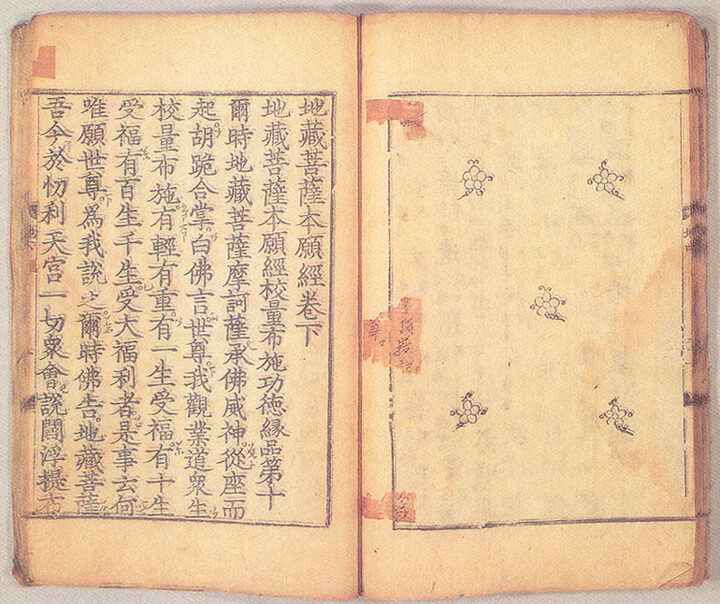 地藏菩薩本願經卷下
地藏菩薩本願經校量布施功徳縁品第十
爾時地藏菩薩摩訶薩承佛威神從座而
起胡跪合掌白佛言世尊我觀業道衆生
校量布施有輕有重有一生受福有十生
受福有百生千生受大福利者是事云何
唯願世尊爲我說之爾時佛告地藏菩薩
吾今於忉利天宮一切衆會說閻浮提布